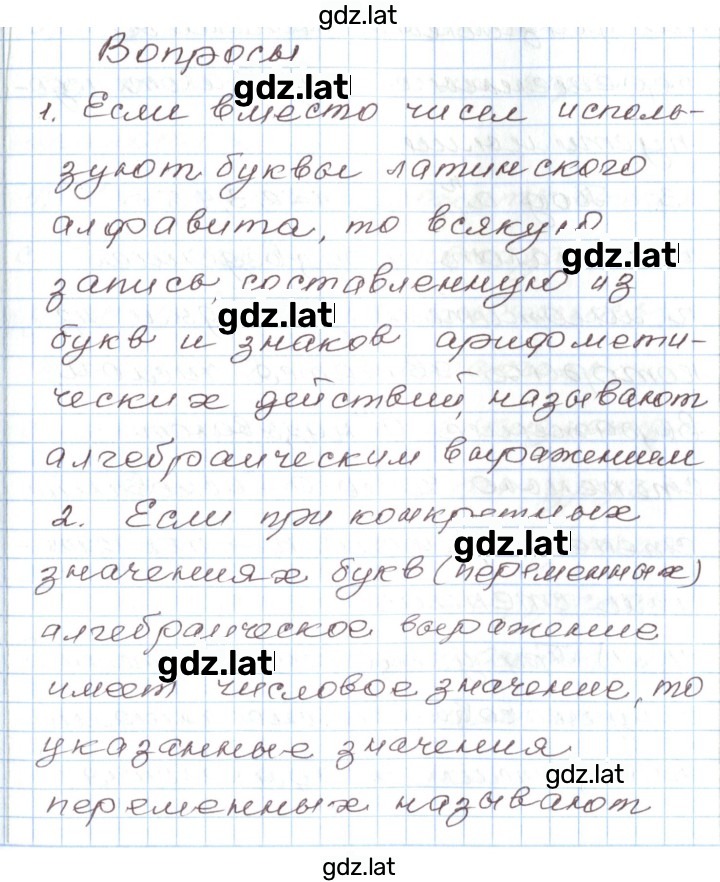 gdz.lat
Вопросы
gdz.lat
1. Если вместо чисел исполь-
зуют буквы латинского
алфавита, то всякую
gdz.lat
запись, составленную из
gdz.lat
букв и знаков арифмети-
ческих действий, называют
алгебраическим выражением
2. Если при конкретных
gdz.lat
значениях букв (переменных)
алгебраическое выражение
gdz.lat
имеет числовое значение, то
указанные значения
gdz.lat
переменных называют
gdz.lat